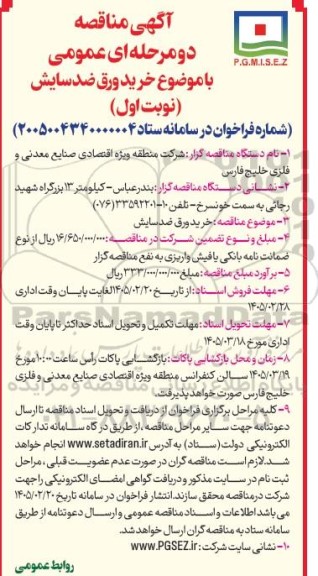 آگهی مناقصه
دو مرحله ای عمومی
با موضوع خرید ورق ضدسایش
(نوبت اول)
P.G.M.I.S.E.Z
(شماره فراخوان در سامانه ستاد ۲۰۰۵۰۰۴۳۴۰۰۰۰۰۰۴)
۱- نام دستگاه مناقصه گزار: شرکت منطقه ویژه اقتصادی صنایع معدنی و
فلزی خلیج فارس
۲- نشانی دستگاه مناقصه گزار: بندرعباس - کیلومتر ۱۳ بزرگراه شهید
رجائی به سمت خونسرخ - تلفن ۱۰-۳۳۵۹۲۲۰۱ (۰۷۶)
۳- موضوع مناقصه: خرید ورق ضدسایش
۴- مبلغ و نوع تضمین شرکت در مناقصه: ۱۶/۶۵۰/۰۰۰/۰۰۰ ریال از نوع
ضمانت نامه بانکی یا فیش واریزی به نفع مناقصه گزار
۵- برآورد مبلغ مناقصه: مبلغ ۳۳۳/۰۰۰/۰۰۰/۰۰۰ ریال
۶- مهلت فروش اسناد: از تاریخ ۱۴۰۵/۰۲/۲۰ لغایت پایان وقت اداری
۱۴۰۵/۰۲/۲۸
۷- مهلت تحویل اسناد: مهلت تکمیل و تحویل اسناد حداکثر تا پایان وقت
اداری مورخ ۱۴۰۵/۰۳/۱۸
۸- زمان و محل بازگشایی پاکات: بازگشایی پاکات رأس ساعت ۱۰:۰۰ مورخ
۱۴۰۵/۰۳/۱۹ سالن کنفرانس منطقه ویژه اقتصادی صنایع معدنی و فلزی
خلیج فارس صورت خواهد پذیرفت.
۹- کلیه مراحل برگزاری فراخوان از دریافت و تحویل اسناد مناقصه تا ارسال
دعوتنامه جهت سایر مراحل مناقصه، از طریق درگاه سامانه تدارکات
الکترونیکی دولت (ستاد) به آدرس www.setadiran.ir انجام خواهد
شد. لازم است مناقصه گران در صورت عدم عضویت قبلی، مراحل
ثبت نام در سایت مذکور و دریافت گواهی امضای الکترونیکی را جهت
شرکت در مناقصه محقق سازند. انتشار فراخوان در سامانه تاریخ ۱۴۰۵/۰۲/۲۰
می باشد اطلاعات و اسناد مناقصه عمومی و ارسال دعوتنامه از طریق
سامانه ستاد به مناقصه گران ارسال خواهد شد.
۱۰- نشانی سایت شرکت: www.PGSEZ.ir
روابط عمومی